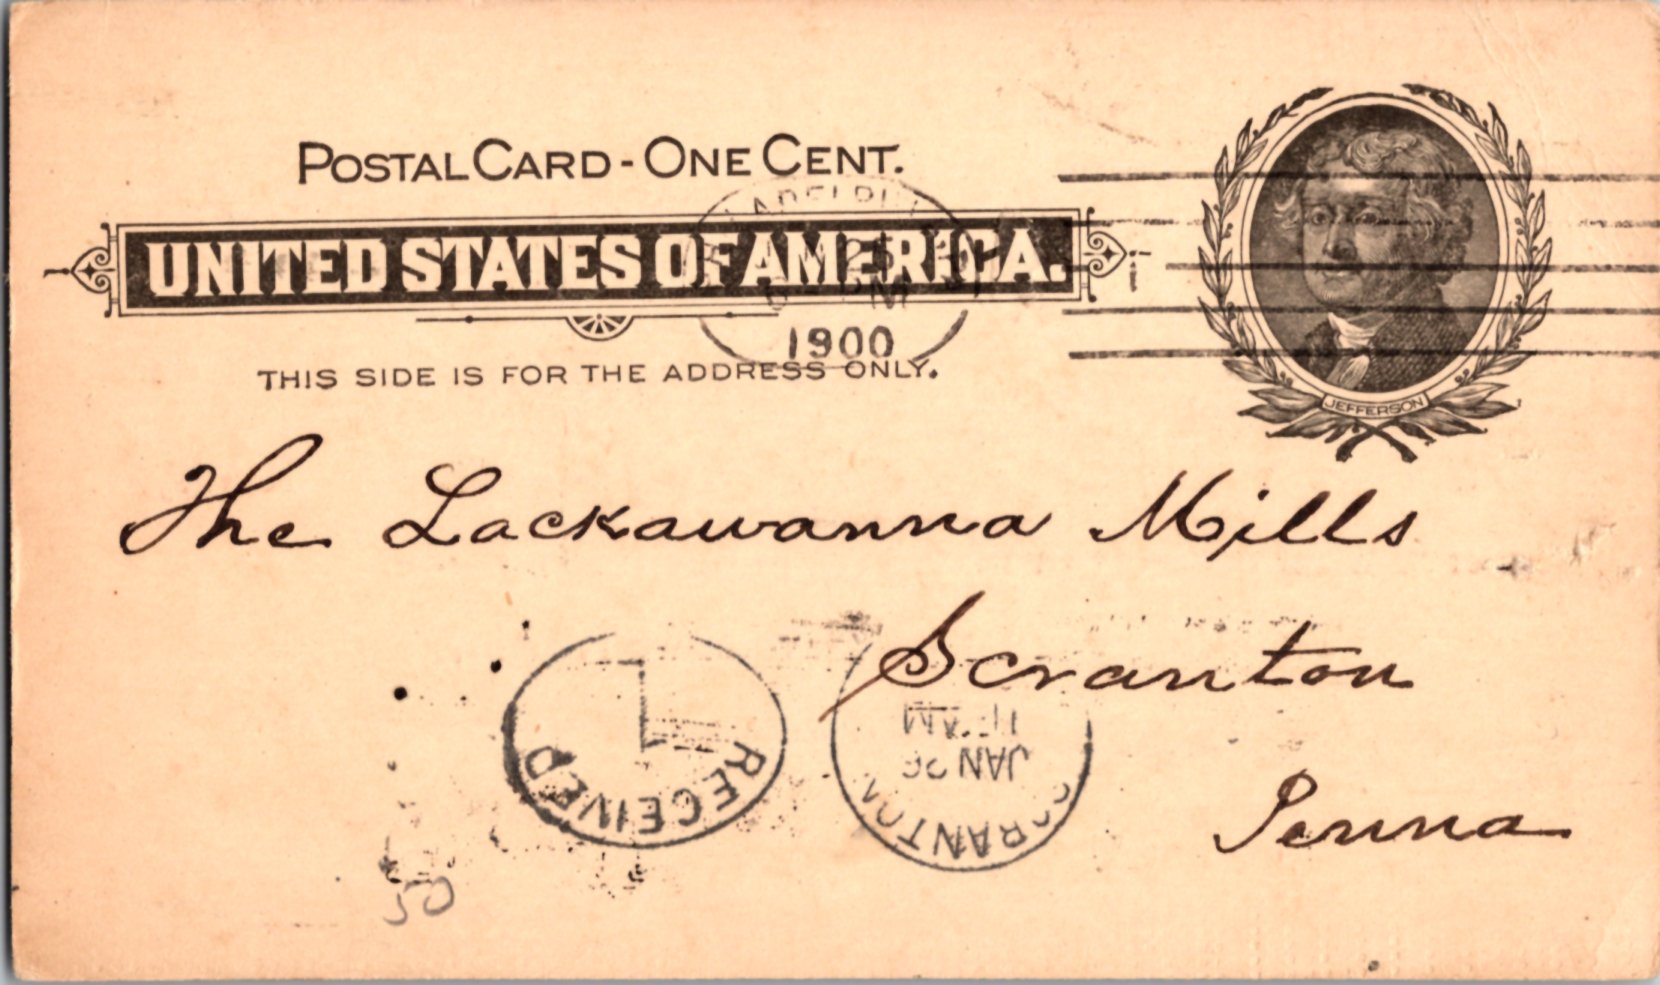 POSTAL CARD - ONE CENT.
UNITED STATES OF AMERICA.
1900
THIS SIDE IS FOR THE ADDRESS ONLY.
JEFFERSON
The Lackawanna Mills
Scranton
Penna
RECEIVED
SCRANTON
JAN 26
11 AM
50